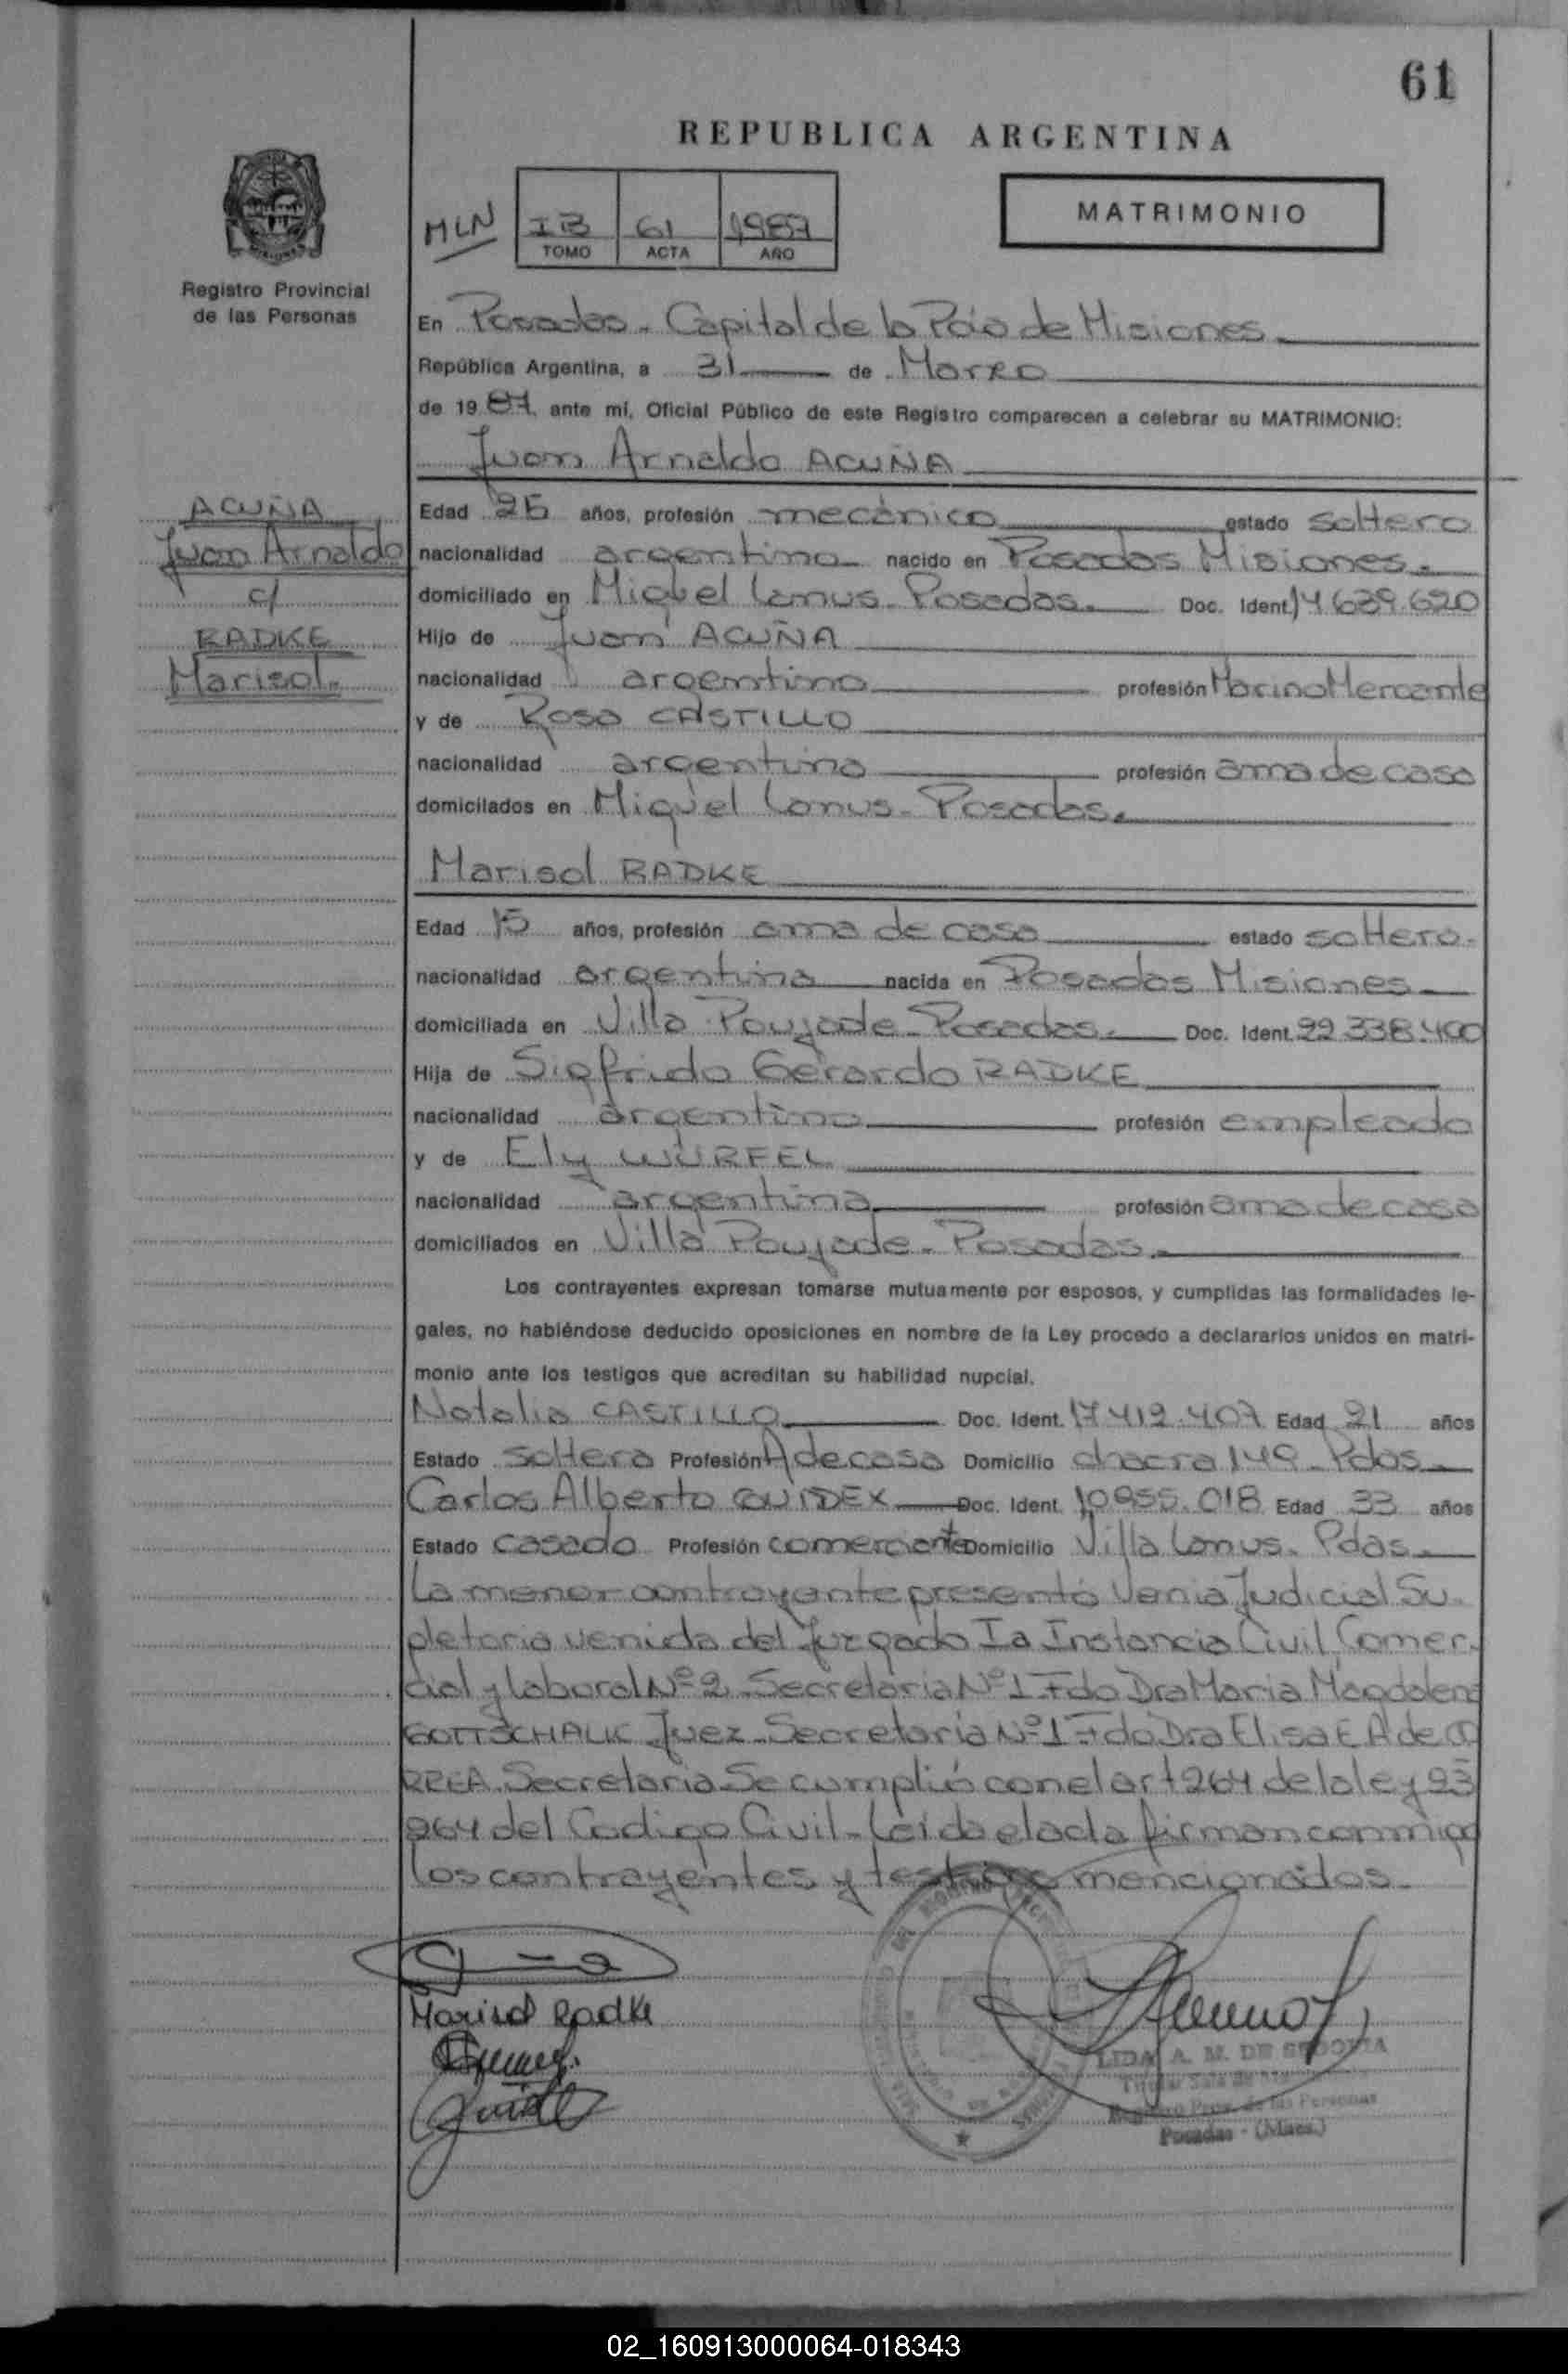 61
REPUBLICA ARGENTINA
MLN
IB 61 1987
TOMO ACTA AÑO
MATRIMONIO
Registro Provincial
de las Personas
En Posadas - Capital de la Pcia de Misiones
República Argentina, a 31 de Marzo
de 1987 ante mí, Oficial Público de este Registro comparecen a celebrar su MATRIMONIO:
Juan Arnaldo ACUÑA
ACUÑA
Juan Arnaldo
c/
RADKE
Marisol.
Edad 25 años, profesión mecánico estado soltero
nacionalidad argentina nacido en Posadas Misiones.
domiciliado en Miguel Lanus - Posadas. Doc. Ident. 14.639.620
Hijo de Juan ACUÑA
nacionalidad argentina profesión Marino Mercante
y de Rosa CASTILLO
nacionalidad argentina profesión ama de casa
domicilados en Miguel Lanus - Posadas.
Marisol RADKE
Edad 15 años, profesión ama de casa estado soltera.
nacionalidad argentina nacida en Posadas Misiones
domiciliada en Villa Poujade - Posadas. Doc. Ident. 22.338.400
Hija de Sigfrido Gerardo RADKE
nacionalidad argentina profesión empleado
y de Ely WÜRFEL
nacionalidad argentina profesión ama de casa
domiciliados en Villa Poujade - Posadas.
Los contrayentes expresan tomarse mutuamente por esposos, y cumplidas las formalidades le-
gales, no habiéndose deducido oposiciones en nombre de la Ley procedo a declararlos unidos en matri-
monio ante los testigos que acreditan su habilidad nupcial.
Natalia CASTILLO Doc. Ident. 17.412.407 Edad 21 años
Estado soltera Profesión A de casa Domicilio chacra 149 - Pdas.
Carlos Alberto Doc. Ident. 10.955.018 Edad 33 años
Estado casado Profesión comerciante Domicilio Villa Lanus - Pdas.
La menor contrayente presentó Venia Judicial Su-
pletoria venida del Juzgado Ia Instancia Civil, Comer-
cial y Laboral Nº 2 - Secretaria Nº 1 Fdo Dra Maria Magdalena
GOTTSCHALK Juez - Secretaria Nº 1 Fdo Dra Elisa E A de CO
RREA. Secretaria - Se cumplió con el art 264 de la ley 23
264 del Codigo Civil - Leída el acta firman conmigo
los contrayentes y testigos mencionados.
Marisol Radke
LIDA A. M. DE SEGOVIA
Titular Sala de
Registro Prov. de las Personas
Posadas - (Mnes.)
02_160913000064-018343